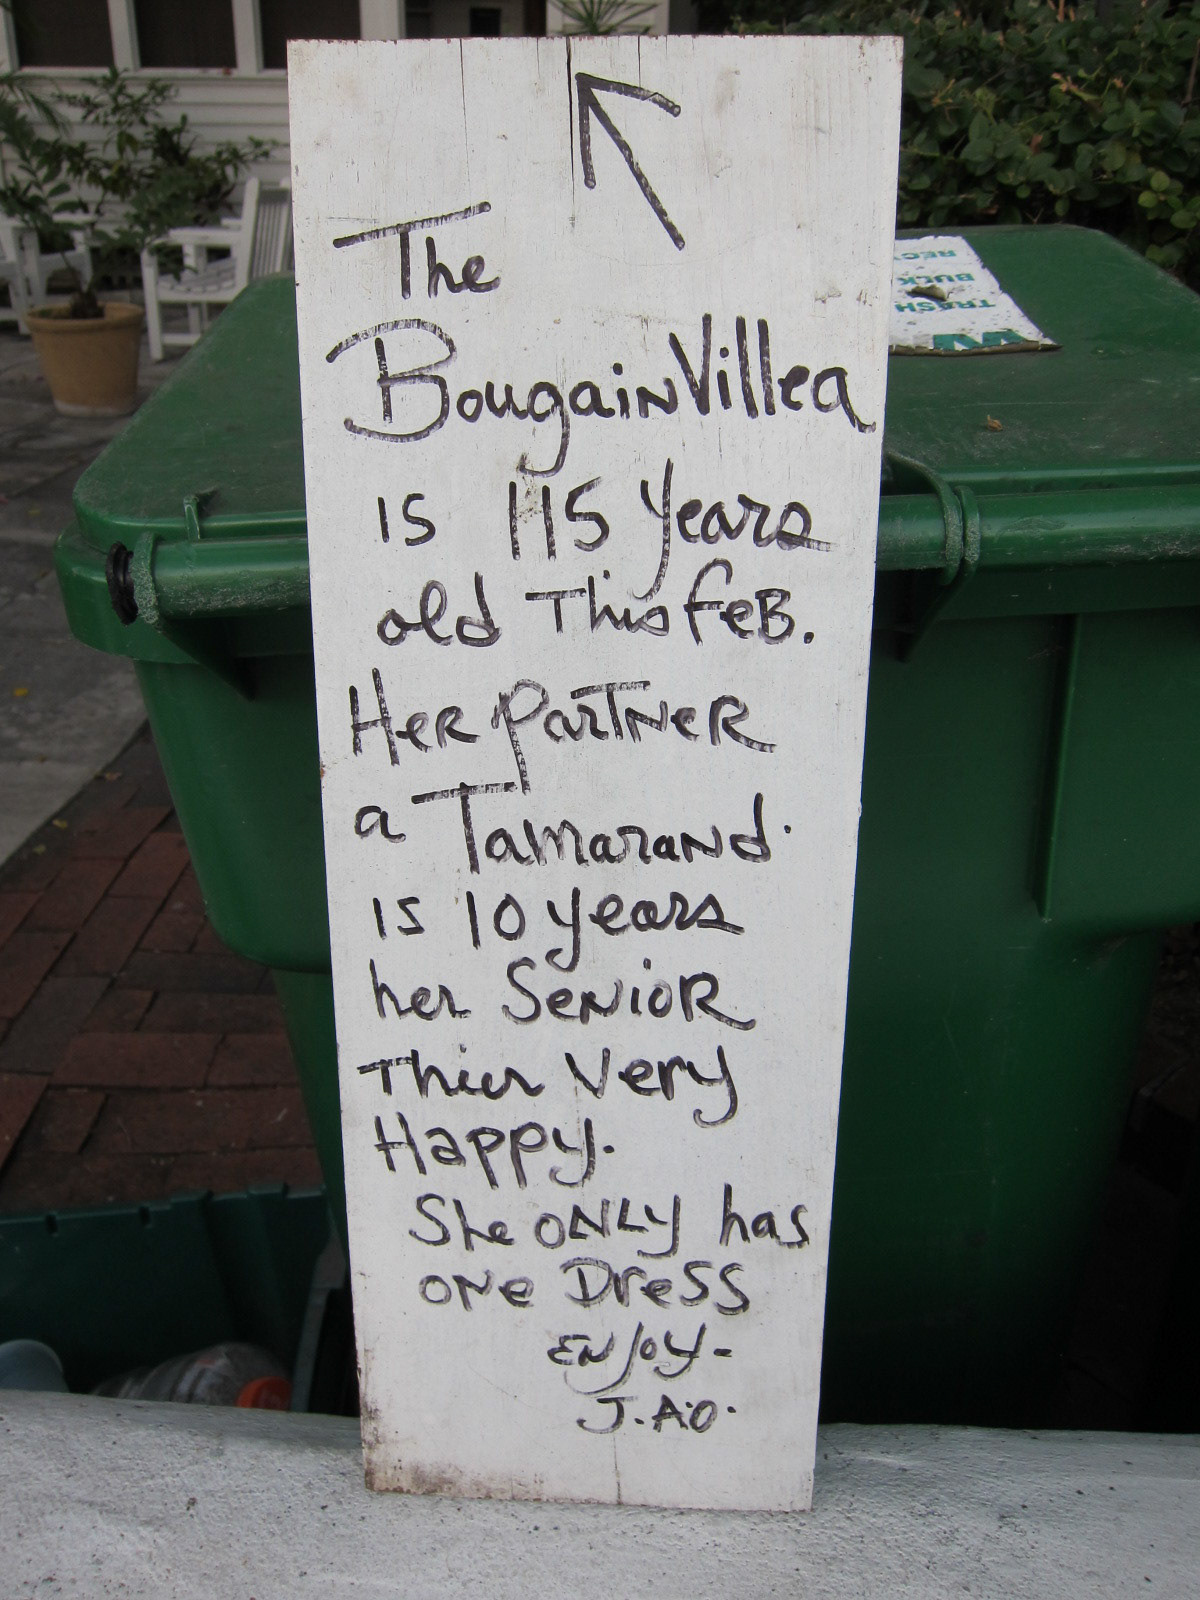 The
BougainVillea
is 115 years
old This feB.
Her PartNeR
a TamaraNd.
is 10 years
her SeNioR
Thier Very
Happy.
She ONLY has
ONe Dress
ENJOY-
J.A.O.
RECY
BUCK
TRASH
WM